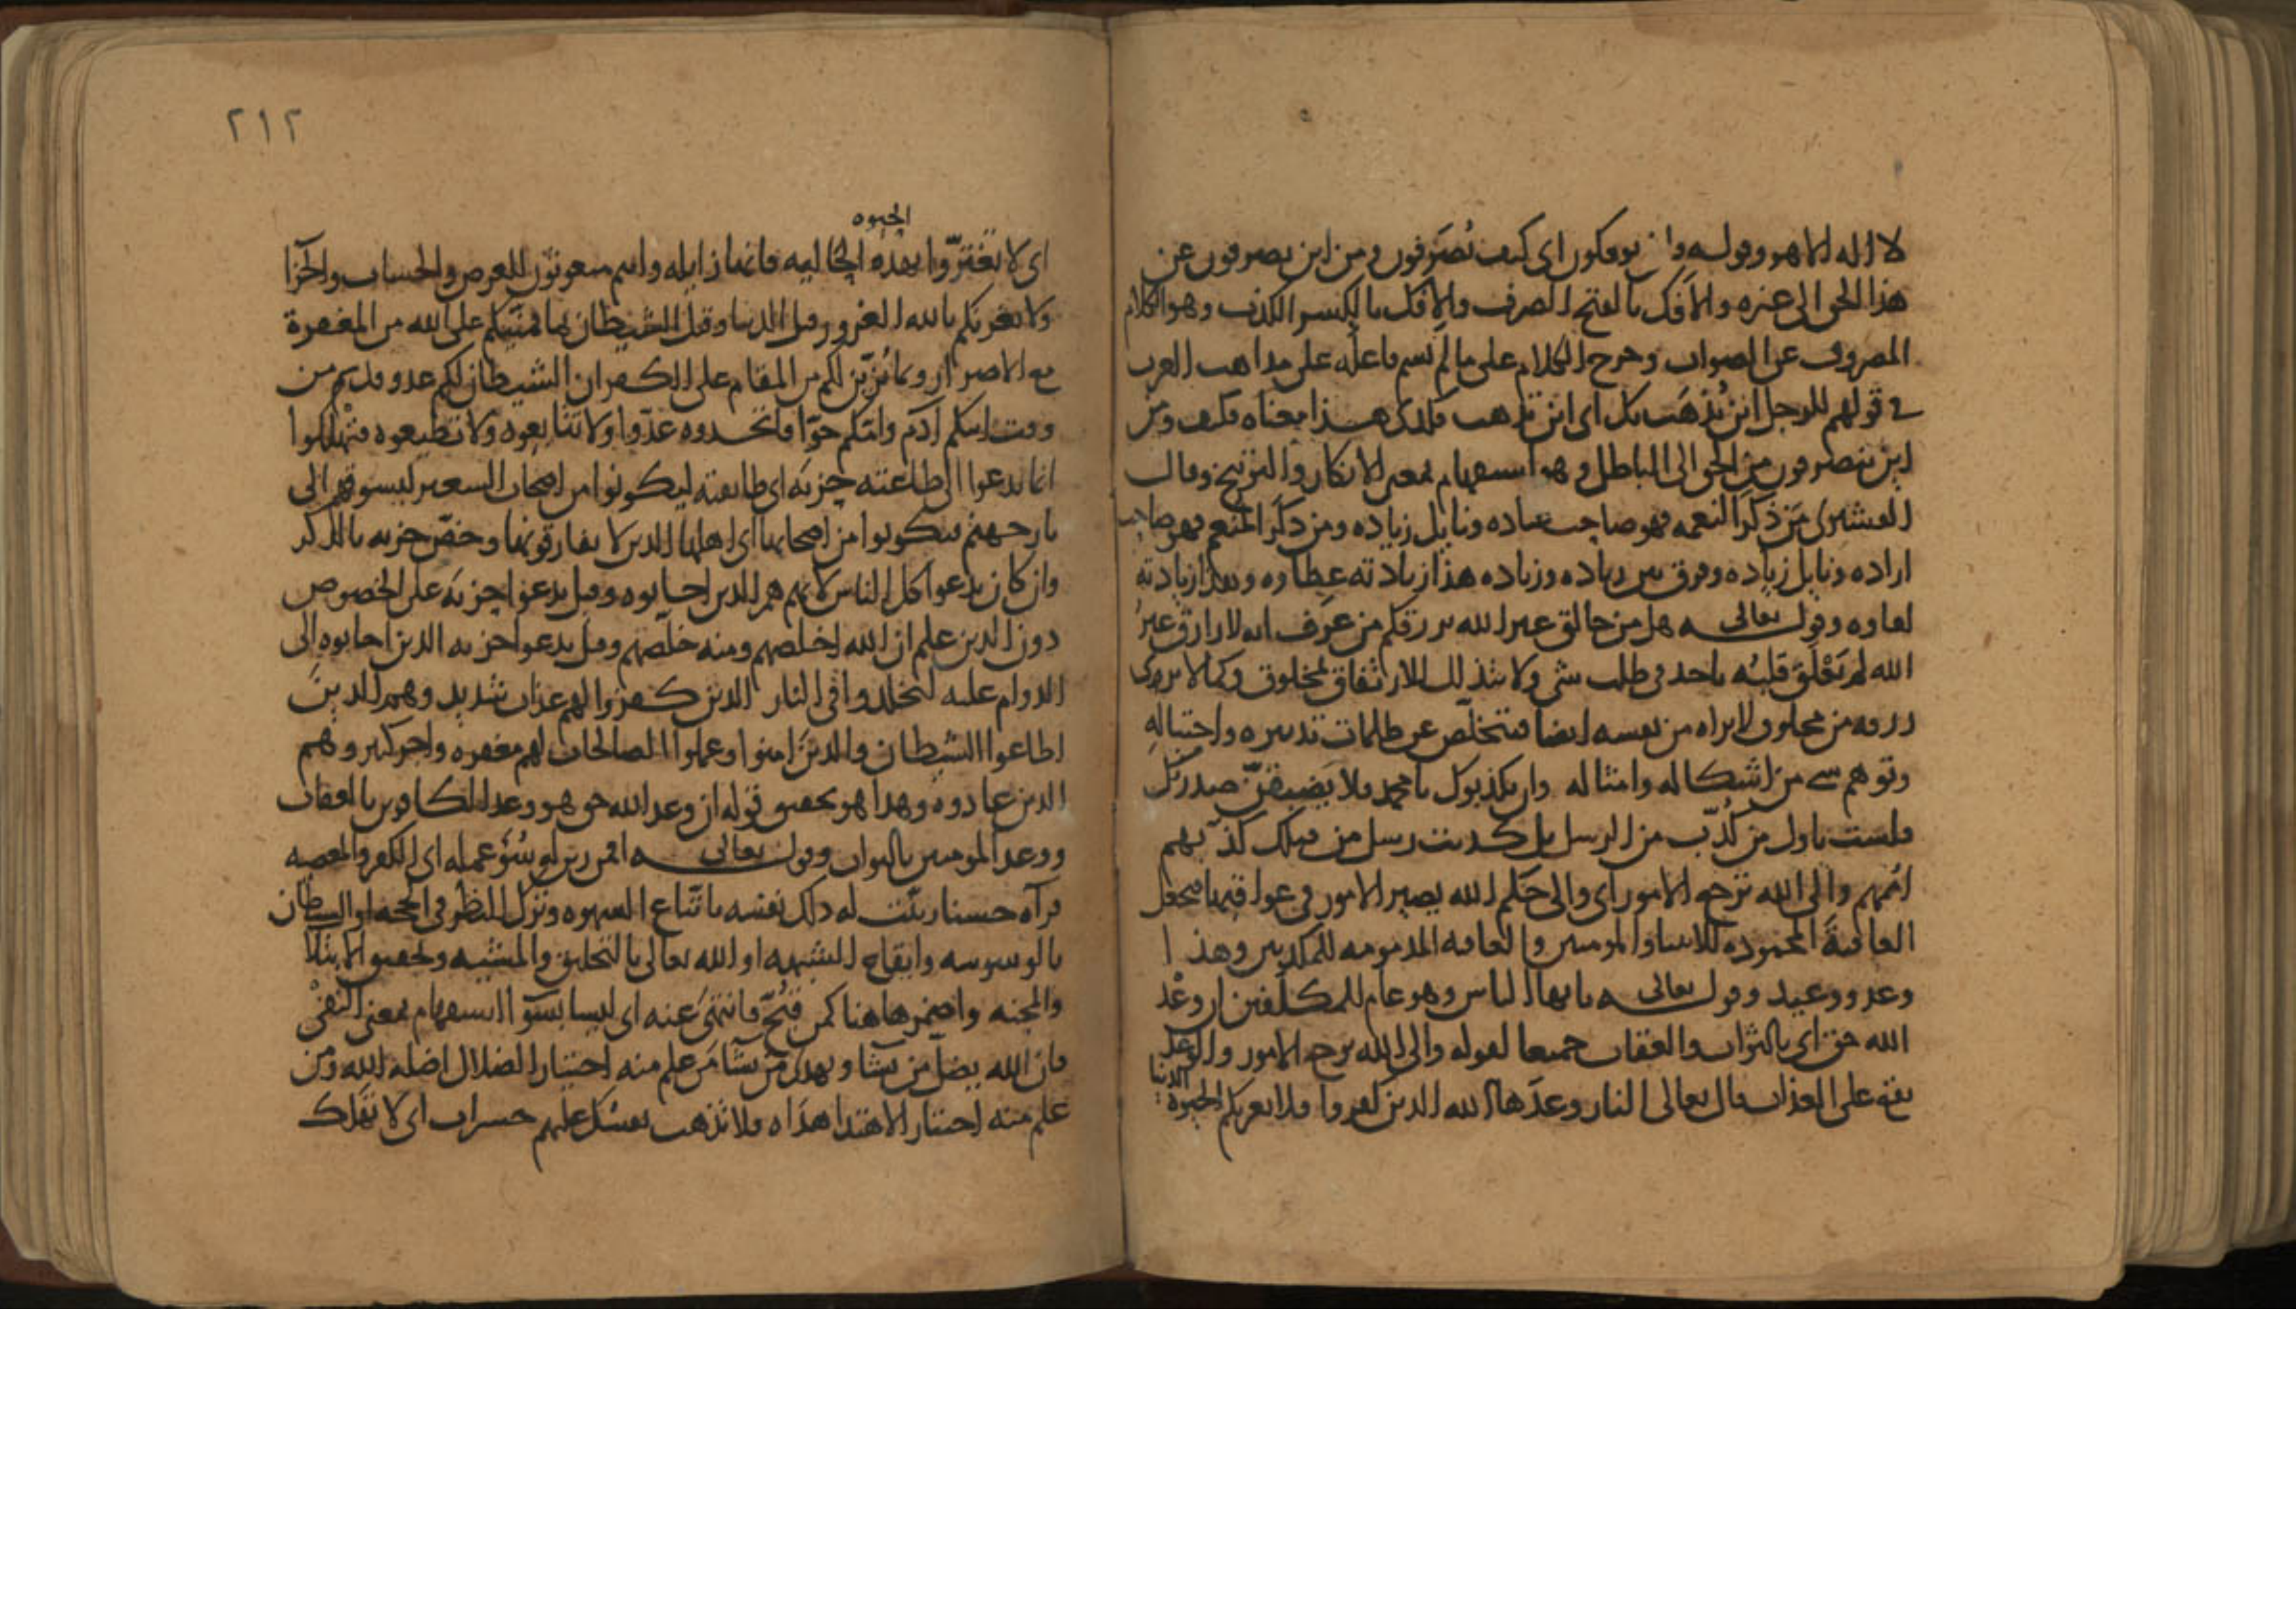 لا اله الا هو وقوله فانى توفكون اى كيف تُصرَفون ومن اين تصرفون عن
هذا الحق الى غيره والأَفك بالفتح الصرف والإفك بالكسر الكذب وهو الكلام
المصروف عن الصواب وخرج الكلام على ما لم يسم فاعله على مذاهب العرب
فى قولهم للرجل اين يُذهَب بك اى اين تذهب فكذلك هذا معناه فكيف ومن
اين تنصرفون من الحق الى الباطل وهو استفهام بمعنى الانكار والتوبيخ وقال
القشيرى مَن ذكَر النعمه فهو صاحب عباده ونايل زياده ومن ذكَر المنعم فهو صاحب
اراده ونايل زياده وفرق بين زياده وزياده هذا زيادته عطاوه وهذا زيادته
لقاوه وقوله تعالى هل من خالق غير الله يرزقكم من عرَف انه لا رازق غيرُ
الله لم يَعْلَق قلبُه باحد فى طلب شى ولا يتذلل للارتفاق لمخلوق وكما لا يرى
رزقه من مخلوق لا يراه من نفسه ايضا فيتخلّص عن ظلمات تدبيره واحتياله
وتوهم شى من اشكاله وامثاله وان يكذبوك يا محمد فلا يَضيقَنّ صدرك
فلست باول من كُذّب من الرسل بل كذبت رسل من قبلك كذّبهم
اُممهم والى الله ترجع الامور اى والى حكم الله يصير الامور فى عواقبها فيجعل
العاقبة المحموده للانبيا والمومنين والعاقبه المذمومه للمكذبين وهذا
وعد ووعيد وقوله تعالى يا ايها الناس وهو عام للمكلّفين ان وعْد
الله حق اى بالثواب والعقاب جميعا لقوله والى الله ترجع الامور والوعد
يقع على العذاب قال تعالى النار وعدَها الله الذين كفروا فلا تغرنكم الحيوة
الدنيا
٢١٢
الحيوه
اى لا تغترّوا بهذه الحاليه فانها زايله وانتم مبعوثون للعرض والحساب والجزا
ولا يغرنكم بالله الغرور قيل الدنيا وقيل الشيطان بما يُمنّيكم على الله من المغفرة
مع الاصرار وبما يُزيّن لكم من المقام على الكفر ان الشيطان لكم عدو قديم من
وقت ابيكم آدم وامّكم حوّا فاتخذوه عدّوا ولا تتابعوه ولا تطيعوه فتهلكوا
انما يدعوا الى طاعته حزبه اى طايفته ليكونوا من اصحاب السعير ليسوقهم الى
نار جهنم فيكونوا من اصحابها اى اهلها الذين لا يفارقونها وخصّ حزبه بالذكر
وان كان يدعوا كل الناس لانهم هم الذين اجابوه وقيل يدعوا حزبه على الخصوص
دون الذين علم ان الله اخلصهم ومنه خلّصهم وقيل يدعوا حزبه الذين اجابوه الى
الدوام عليه ليخلدوا فى النار الذين كفروا لهم عذاب شديد وهم الذين
اطاعوا الشيطان والذين امنوا وعملوا الصالحات لهم مغفره واجر كبير وهم
الذين عادوه وهذا هو تحقيق قوله ان وعد الله حق هو وعد الكافرين بالعقاب
ووعد المومنين بالثواب وقوله تعالى افمن زين له سُوْ عمله اى الكفر والمعصيه
فرآه حسنا زيّنت له ذلك نفسه باتّباع الشهوه وترك النظر فى الحجه او الشيطان
بالوسوسه وايقاع الشبهه او الله تعالى بالتخليق والمشيه وتحقيق الابتلا
والمحنه واضمر هاهنا كمن قبّح فانتهى عنه اى ليسا بسوآ استفهام بمعنى النفىْ
فان الله يضل من يشا ويهدى من يشا مَن علم منه اختيار الضلال اضله الله ومن
علم منه اختيار الاهتدا هداه فلا تذهب نفسك عليهم حسرات اى لا تهلك